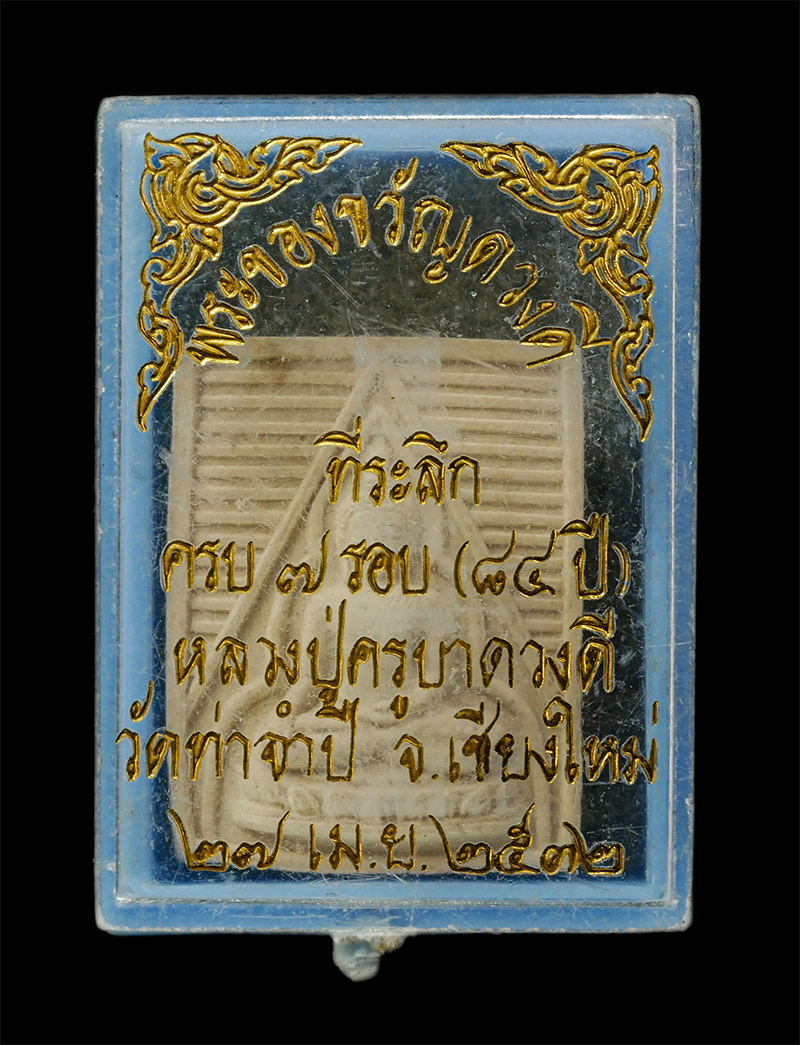 พระของขวัญดวงดี
ที่ระลึก
ครบ ๗ รอบ (๘๔ ปี)
หลวงปู่ครูบาดวงดี
วัดท่าจำปี จ.เชียงใหม่
๒๗ เม.ย. ๒๕๓๒